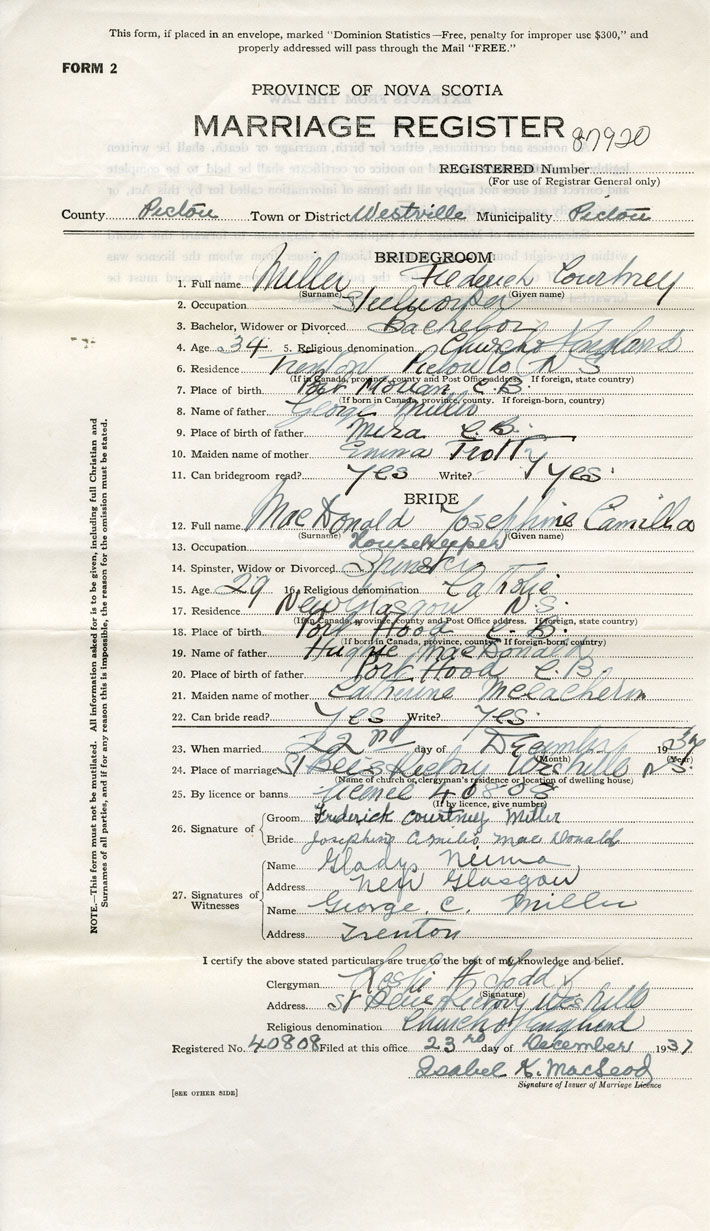 This form, if placed in an envelope, marked "Dominion Statistics—Free, penalty for improper use $300," and
properly addressed will pass through the Mail "FREE."
FORM 2
PROVINCE OF NOVA SCOTIA
MARRIAGE REGISTER 87920
REGISTERED Number
(For use of Registrar General only)
County Pictou Town or District Westville Municipality Pictou
BRIDEGROOM
1. Full name Miller Frederick Courtney
(Surname) (Given name)
2. Occupation Steelworker
3. Bachelor, Widower or Divorced Bachelor
4. Age 34 5. Religious denomination Church of England
6. Residence Trenton Pictou Co N S
(If in Canada, province, county and Post Office address. If foreign, state country)
7. Place of birth Port Morien C.B.
(If born in Canada, province, county. If foreign-born, country)
8. Name of father George Miller
9. Place of birth of father Mira C.B.
10. Maiden name of mother Emma Trotty
11. Can bridegroom read? Yes Write? Yes
BRIDE
12. Full name MacDonald Josephine Camilla
(Surname) (Given name)
13. Occupation Housekeeper
14. Spinster, Widow or Divorced Spinster
15. Age 29 16. Religious denomination Catholic
17. Residence New Glasgow N.S.
(If in Canada, province, county and Post Office address. If foreign, state country)
18. Place of birth Port Hood C.B.
(If born in Canada, province, county. If foreign-born, country)
19. Name of father Hughie MacDonald
20. Place of birth of father Port Hood C B
21. Maiden name of mother Catherine McEachern
22. Can bride read? Yes Write? Yes.
23. When married 22nd day of December 1937
(Month) (Year)
24. Place of marriage St Rectory Westville N S.
(Name of church or clergyman's residence or location of dwelling house)
25. By licence or banns licence 40808
(If by licence, give number)
26. Signature of
Groom Frederick Courtney Miller
Bride Josephine Camilia MacDonald
27. Signatures of Witnesses
Name Gladys
Address New Glasgow
Name George C. Miller
Address Trenton
I certify the above stated particulars are true to the best of my knowledge and belief.
Clergyman Leslie A Todd
(Signature)
Address St Rectory Westville
Religious denomination Church of England
Registered No. 40808 Filed at this office 23rd day of December 1937
Isabel K. MacLeod
Signature of Issuer of Marriage Licence
[SEE OTHER SIDE]
NOTE.—This form must not be mutilated. All information asked for is to be given, including full Christian and
Surnames of all parties, and if for any reason this is impossible, the reason for the omission must be stated.